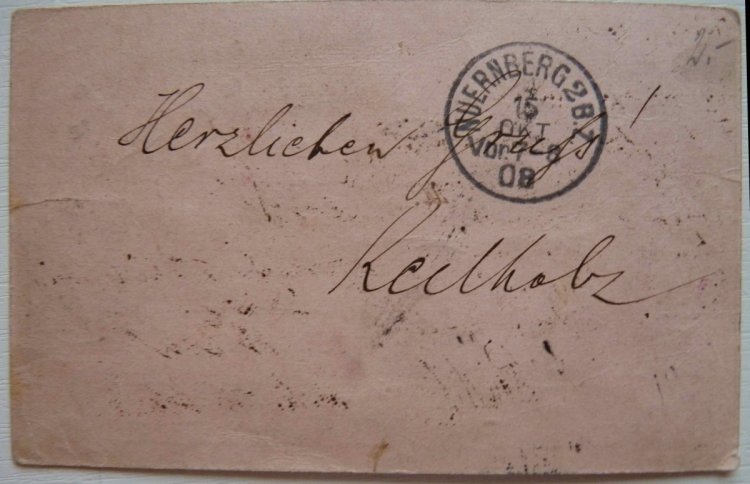 NUERNBERG 2 B.Z.
15
OKT
Vor 7-8
08
Herzlichen Gruss!
Keilholz
2.-